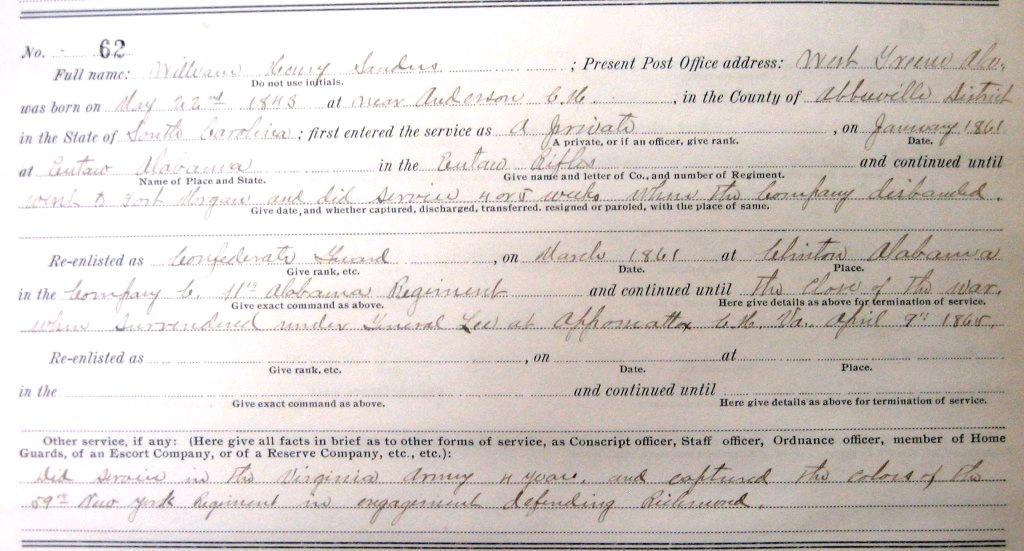 No. 62
Full name: William Henry Sanders ; Present Post Office address: West Greene Ala.
Do not use initials.
was born on May 22nd 1843 at near Anderson C.H. , in the County of Abbeville District
in the State of South Carolina ; first entered the service as A private , on January 1861
A private, or if an officer, give rank. Date.
at Eutaw Alabama in the Eutaw Rifles and continued until
Name of Place and State. Give name and letter of Co., and number of Regiment.
went to Fort Morgan and did service 4 or 5 weeks when the Company disbanded.
Give date, and whether captured, discharged, transferred. resigned or paroled, with the place of same.
Re-enlisted as Confederate , on March 1861 at Clinton Alabama
Give rank, etc. Date. Place.
in the Company C. 11th Alabama Regiment and continued until the Close of the war.
Give exact command as above. Here give details as above for termination of service.
when surrendered under General Lee at Appomattox C.H. Va. April 9th 1865.
Re-enlisted as , on at
Give rank, etc. Date. Place.
in the and continued until
Give exact command as above. Here give details as above for termination of service.
Other service, if any: (Here give all facts in brief as to other forms of service, as Conscript officer, Staff officer, Ordnance officer, member of Home
Guards, of an Escort Company, or of a Reserve Company, etc., etc.):
Did service in the Virginia Army 4 years. and captured the colors of the
59th New York Regiment in engagement defending Richmond.